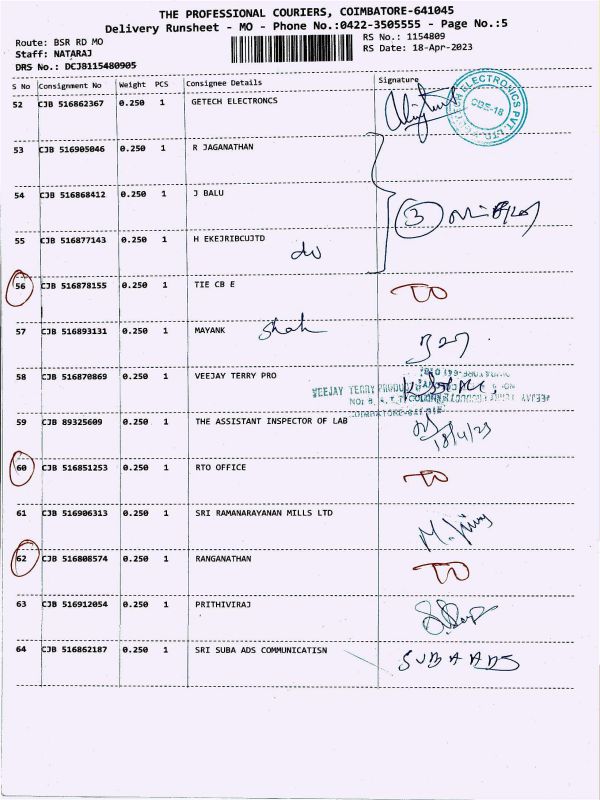 THE PROFESSIONAL COURIERS, COIMBATORE-641045
Delivery Runsheet - MO - Phone No.:0422-3505555 - Page No.:5
Route: BSR RD MO
Staff: NATARAJ
DRS No.: DCJB115480905
RS No.: 1154809
RS Date: 18-Apr-2023
S No Consignment No Weight PCS Consignee Details Signature
52 CJB 516862367 0.250 1 GETECH ELECTRONCS
ELECTRONICS PVT. LTD. CBE-18
53 CJB 516905046 0.250 1 R JAGANATHAN
54 CJB 516868412 0.250 1 J BALU
3
55 CJB 516877143 0.250 1 H EKEJRIBCUJTD
56 CJB 516878155 0.250 1 TIE CB E
57 CJB 516893131 0.250 1 MAYANK Shah
58 CJB 516870869 0.250 1 VEEJAY TERRY PRO
VEEJAY TERRY
59 CJB 89325609 0.250 1 THE ASSISTANT INSPECTOR OF LAB
18/4/23
60 CJB 516851253 0.250 1 RTO OFFICE
61 CJB 516906313 0.250 1 SRI RAMANARAYANAN MILLS LTD
62 CJB 516808574 0.250 1 RANGANATHAN
63 CJB 516912054 0.250 1 PRITHIVIRAJ
64 CJB 516862187 0.250 1 SRI SUBA ADS COMMUNICATISN SUBA ADS